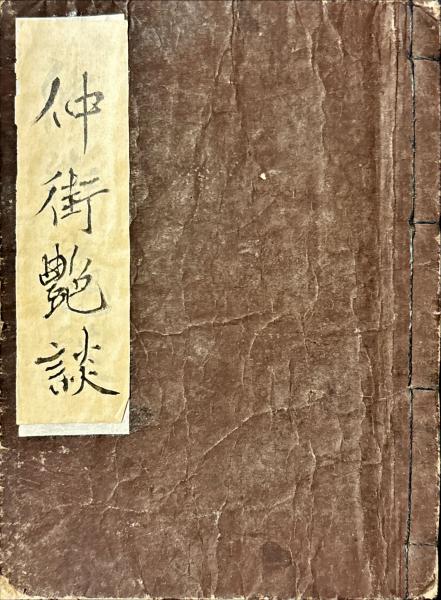 仲街艶談